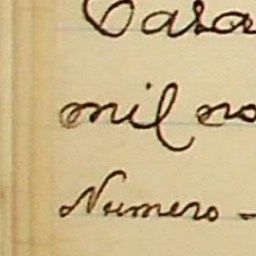 Casa
mil no
Numero -